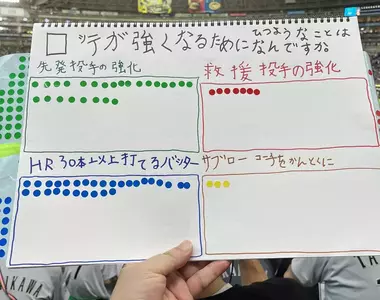 ロッテが強くなるために ひつようなことは
なんですか
先発投手の強化
救援投手の強化
HR 30本以上打てるバッター
サブロー コーチをかんとくに
IKAWA